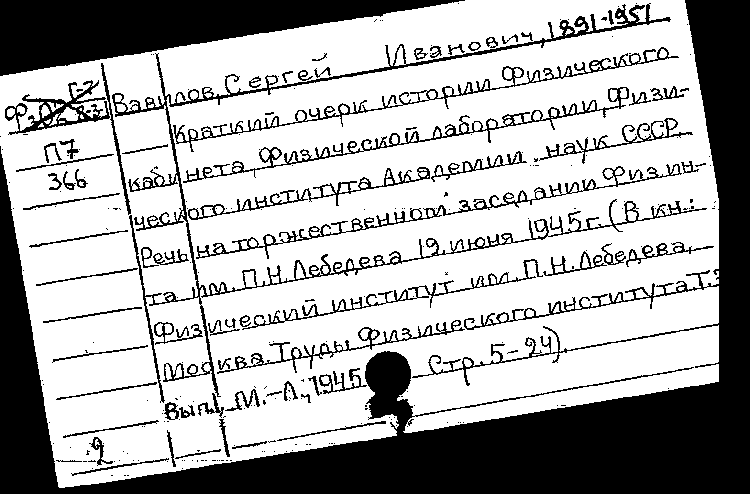 Вавилов, Сергей Иванович, 1891-1951
Краткий очерк истории Физического
кабинета, Физической лаборатории, Физи-
ческого института Академии наук СССР.
Речь на торжественном заседании Физ. ин-
та им. П.Н. Лебедева 19 июня 1945 г. (В кн.:
Физический институт им. П.Н. Лебедева,
Москва. Труды Физического института. Т.3
Вып.1, М.-Л., 1945 Стр. 5-24).
П7
366
2